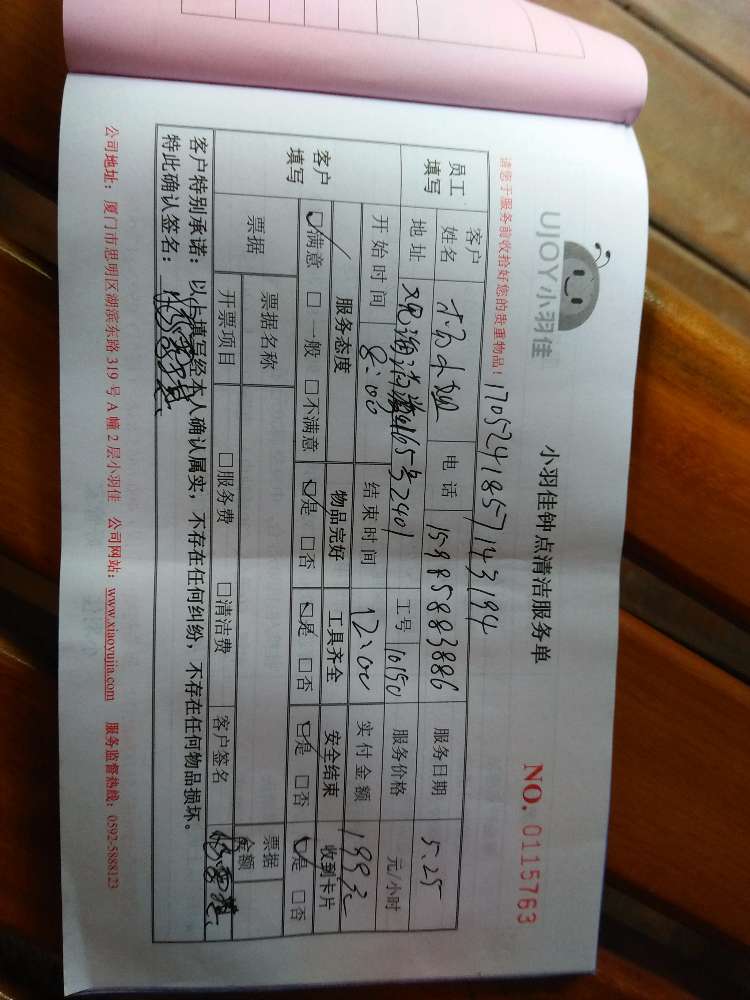 UJOY小羽佳
小羽佳钟点清洁服务单
NO. 0115763
请您于服务前收拾好您的贵重物品！
1705241857143194
员工填写 客户姓名 杨小姐 电话 15985883886 服务日期 5.25
地址 165号2401 工号 10150 服务价格 元/小时
开始时间 8:00 结束时间 12:00 实付金额 199元
客户填写 服务态度 物品完好 工具齐全 安全结束 收到卡片
☑满意 □一般 □不满意 ☑是 □否 ☑是 □否 ☑是 □否 ☑是 □否
票据 票据名称 票据金额
开票项目 □服务费 □清洁费 客户签名
客户特别承诺：以上填写经本人确认属实，不存在任何纠纷，不存在任何物品损坏。
特此确认签名：
公司地址：厦门市思明区湖滨东路 319 号 A 幢 2 层小羽佳 公司网站：www.xiaoyujia.com 服务监督热线：0592-5888123